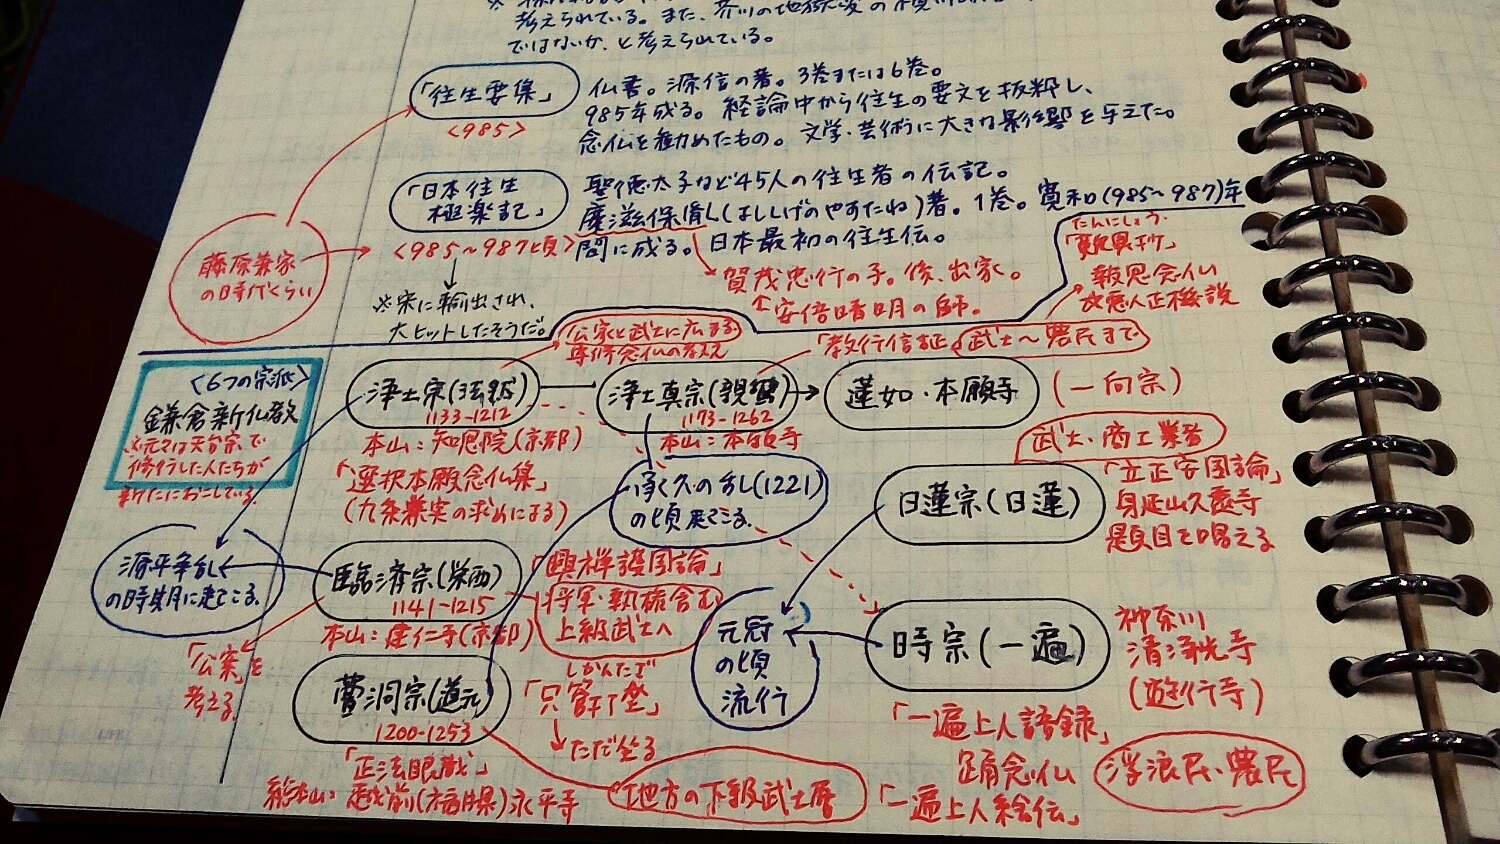 考えられている。また、芥川の地獄変の
ではないか、と考えられている。
「往生要集」
<985>
仏書。源信の著。3巻または6巻。
985年成る。経論中から往生の要文を抜粋し、
念仏を勧めたもの。文学・芸術に大きな影響を与えた。
「日本往生
極楽記」
<985~987頃>
聖徳太子など45人の往生者の伝記。
慶滋保胤(よししげのやすたね)著。1巻。寛和(985~987)年
間に成る。日本最初の往生伝。
賀茂忠行の子。後、出家。
↑安倍晴明の師。
藤原兼家
の時代くらい
※宋に輸出され、
大ヒットしたそうだ。
たんにしょう
「歎異抄」
報恩念仏
悪人正機説
<6つの宗派>
鎌倉新仏教
※元々は天台宗で
修行した人たちが
新たにおこしている。
公家と武士に広まる
専修念仏の教え
「教行信証」
武士~農民まで
浄土宗(法然)
1133-1212
本山:知恩院(京都)
「選択本願念仏集」
(九条兼実の求めによる)
浄土真宗(親鸞)
1173-1262
本山:本願寺
蓮如・本願寺
(一向宗)
承久の乱(1221)
の頃 出てくる。
武士・商工業者
日蓮宗(日蓮)
「立正安国論」
身延山久遠寺
題目を唱える
源平争乱
の時期に出てくる。
臨済宗(栄西)
1141-1215
本山:建仁寺(京都)
「興禅護国論」
将軍・執権含む
上級武士へ
「公案」を
考える。
曹洞宗(道元)
1200-1253
「正法眼蔵」
総本山:越前(福井県)永平寺
しかんたざ
「只管打坐」
ただ坐る
地方の下級武士層
元寇
の頃
流行
時宗(一遍)
神奈川
清浄光寺
(遊行寺)
「一遍上人語録」
踊念仏
「一遍上人絵伝」
浮浪民・農民